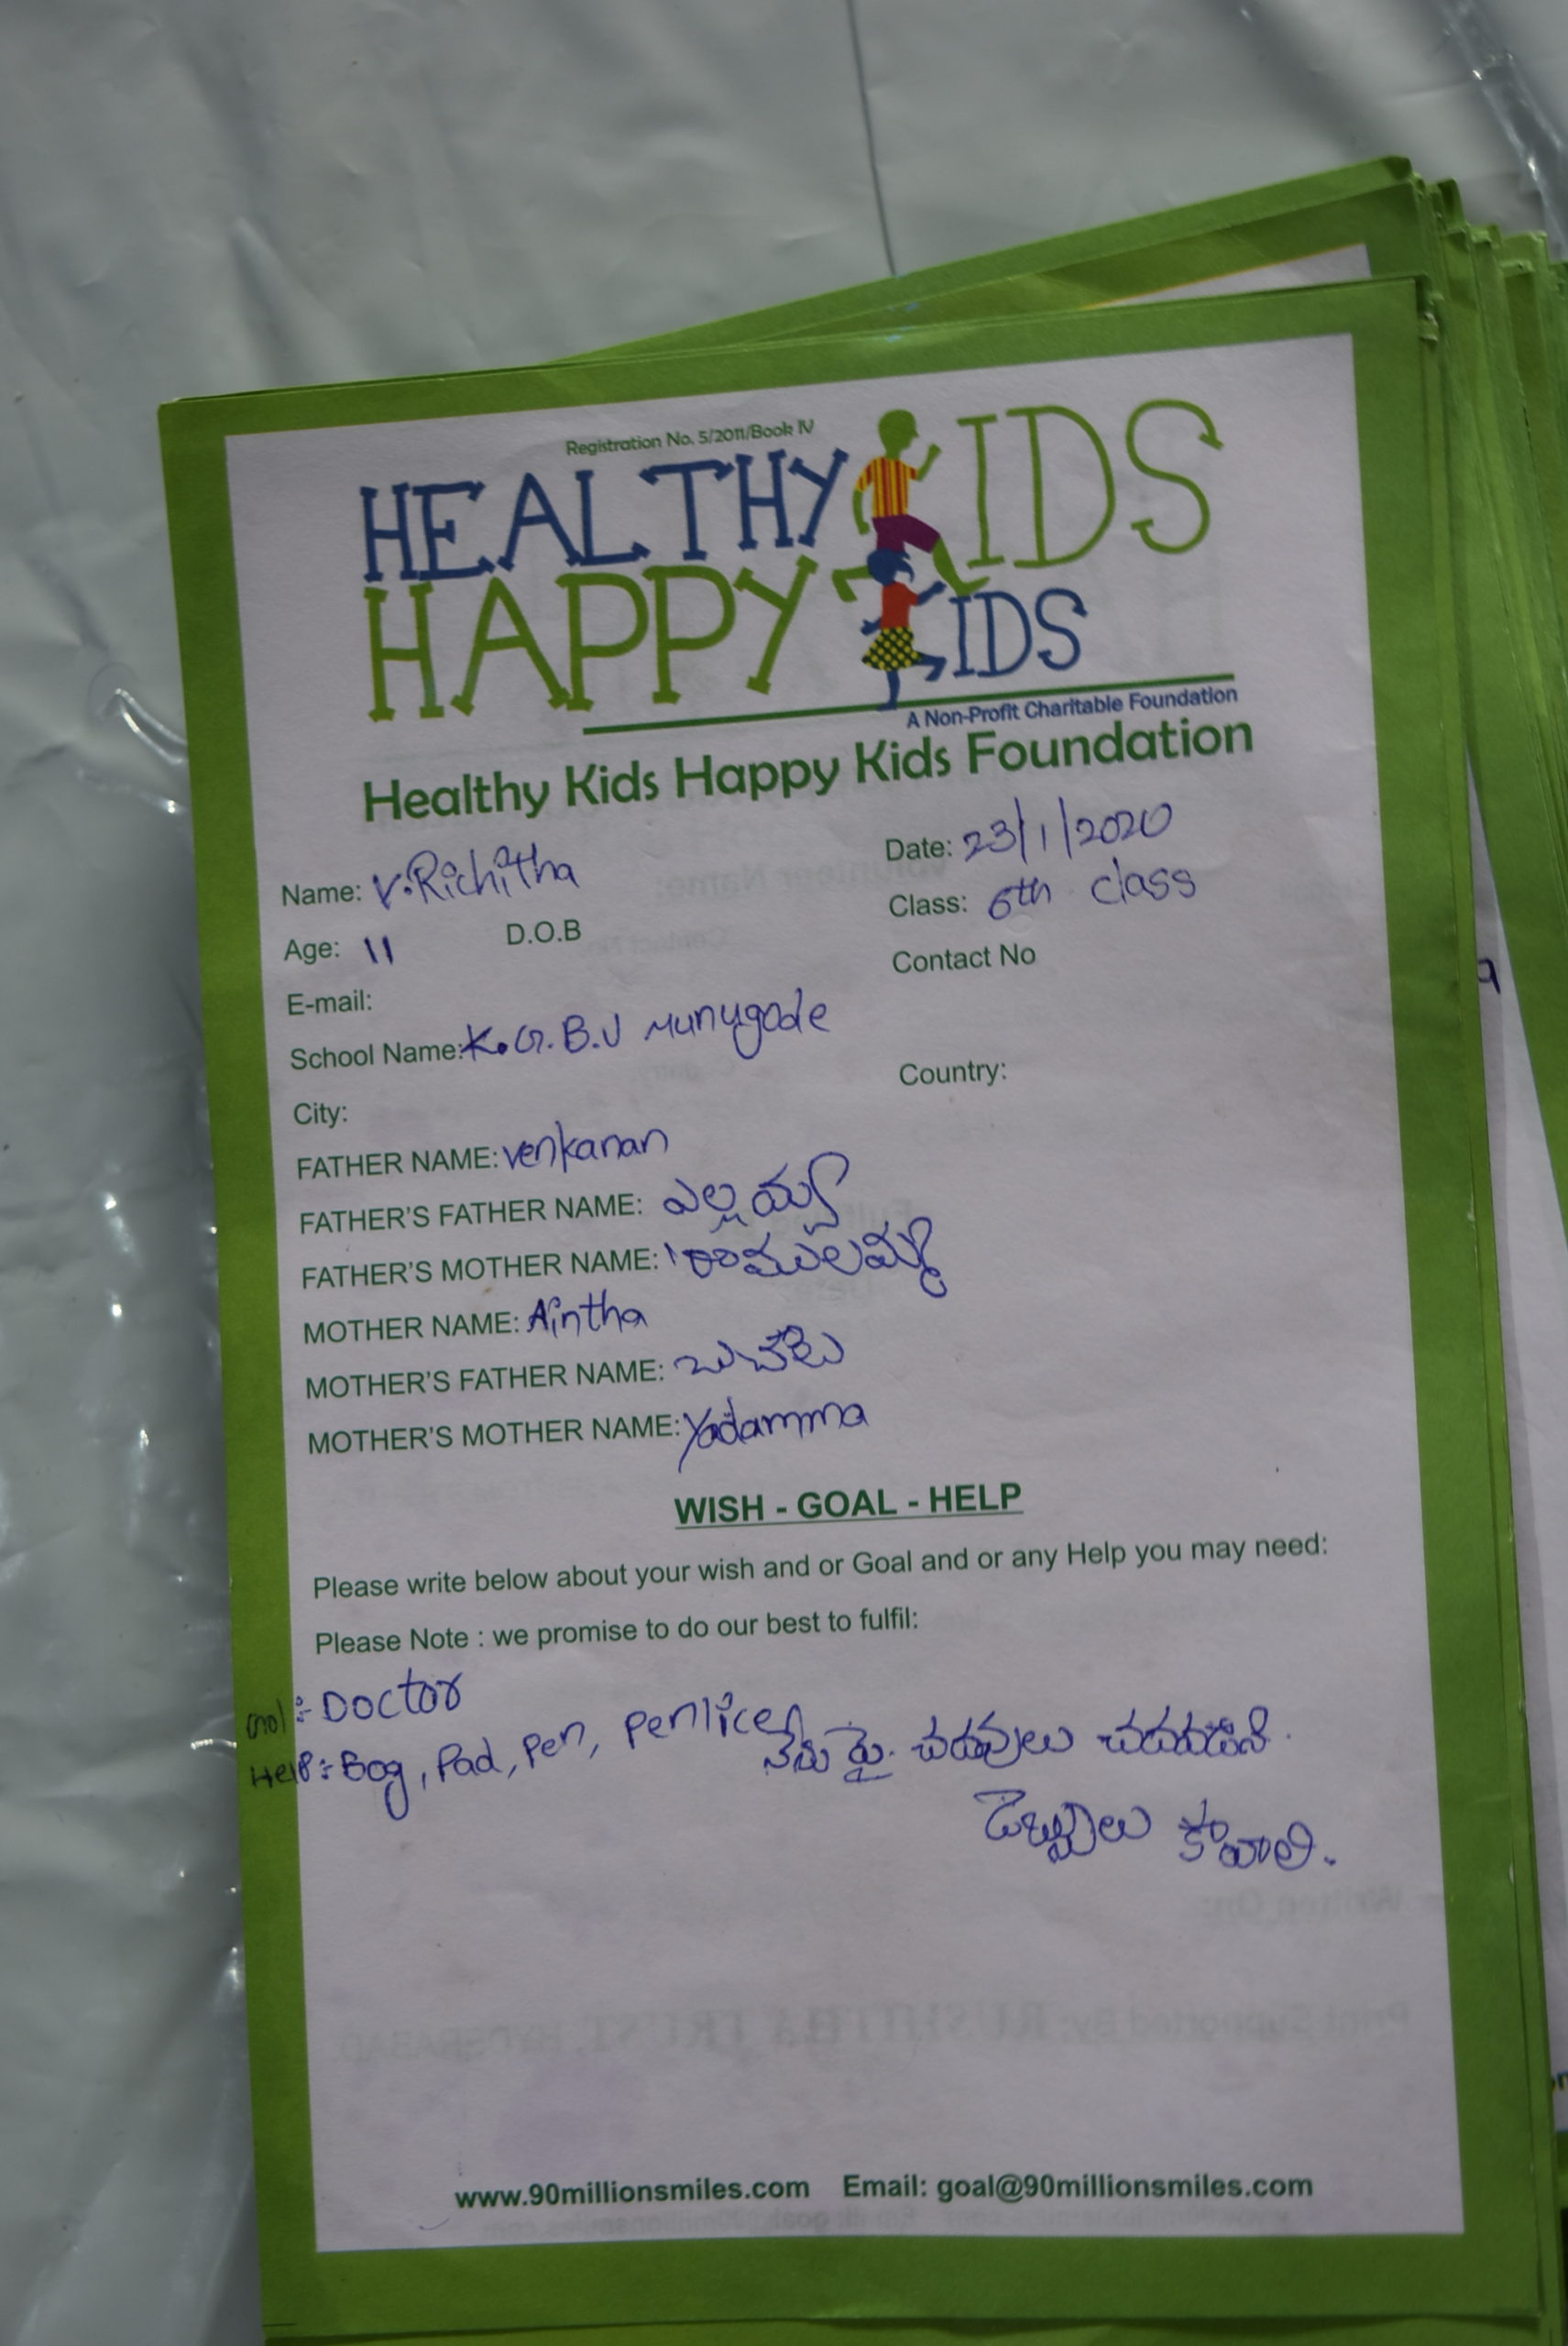 Registration No. 5/2011/Book IV
HEALTHY KIDS
HAPPY KIDS
A Non-Profit Charitable Foundation
Healthy Kids Happy Kids Foundation
Name: V.Richitha Date: 23/1/2020
Age: 11 D.O.B Class: 6th class
E-mail: Contact No
School Name: K.G.B.V Munugode
City: Country:
FATHER NAME: venkanan
FATHER'S FATHER NAME: ఎల్లయ్య
FATHER'S MOTHER NAME: రాములమ్మ
MOTHER NAME: Aintha
MOTHER'S FATHER NAME:
MOTHER'S MOTHER NAME: Yadamma
WISH - GOAL - HELP
Please write below about your wish and or Goal and or any Help you may need:
Please Note : we promise to do our best to fulfil:
Gol: Doctor
Help: Bag, Pad, Pen, Penlice నేను పై. చదవులు చదవడానికి.
డెబ్బులు కావాలి.
www.90millionsmiles.com Email: goal@90millionsmiles.com